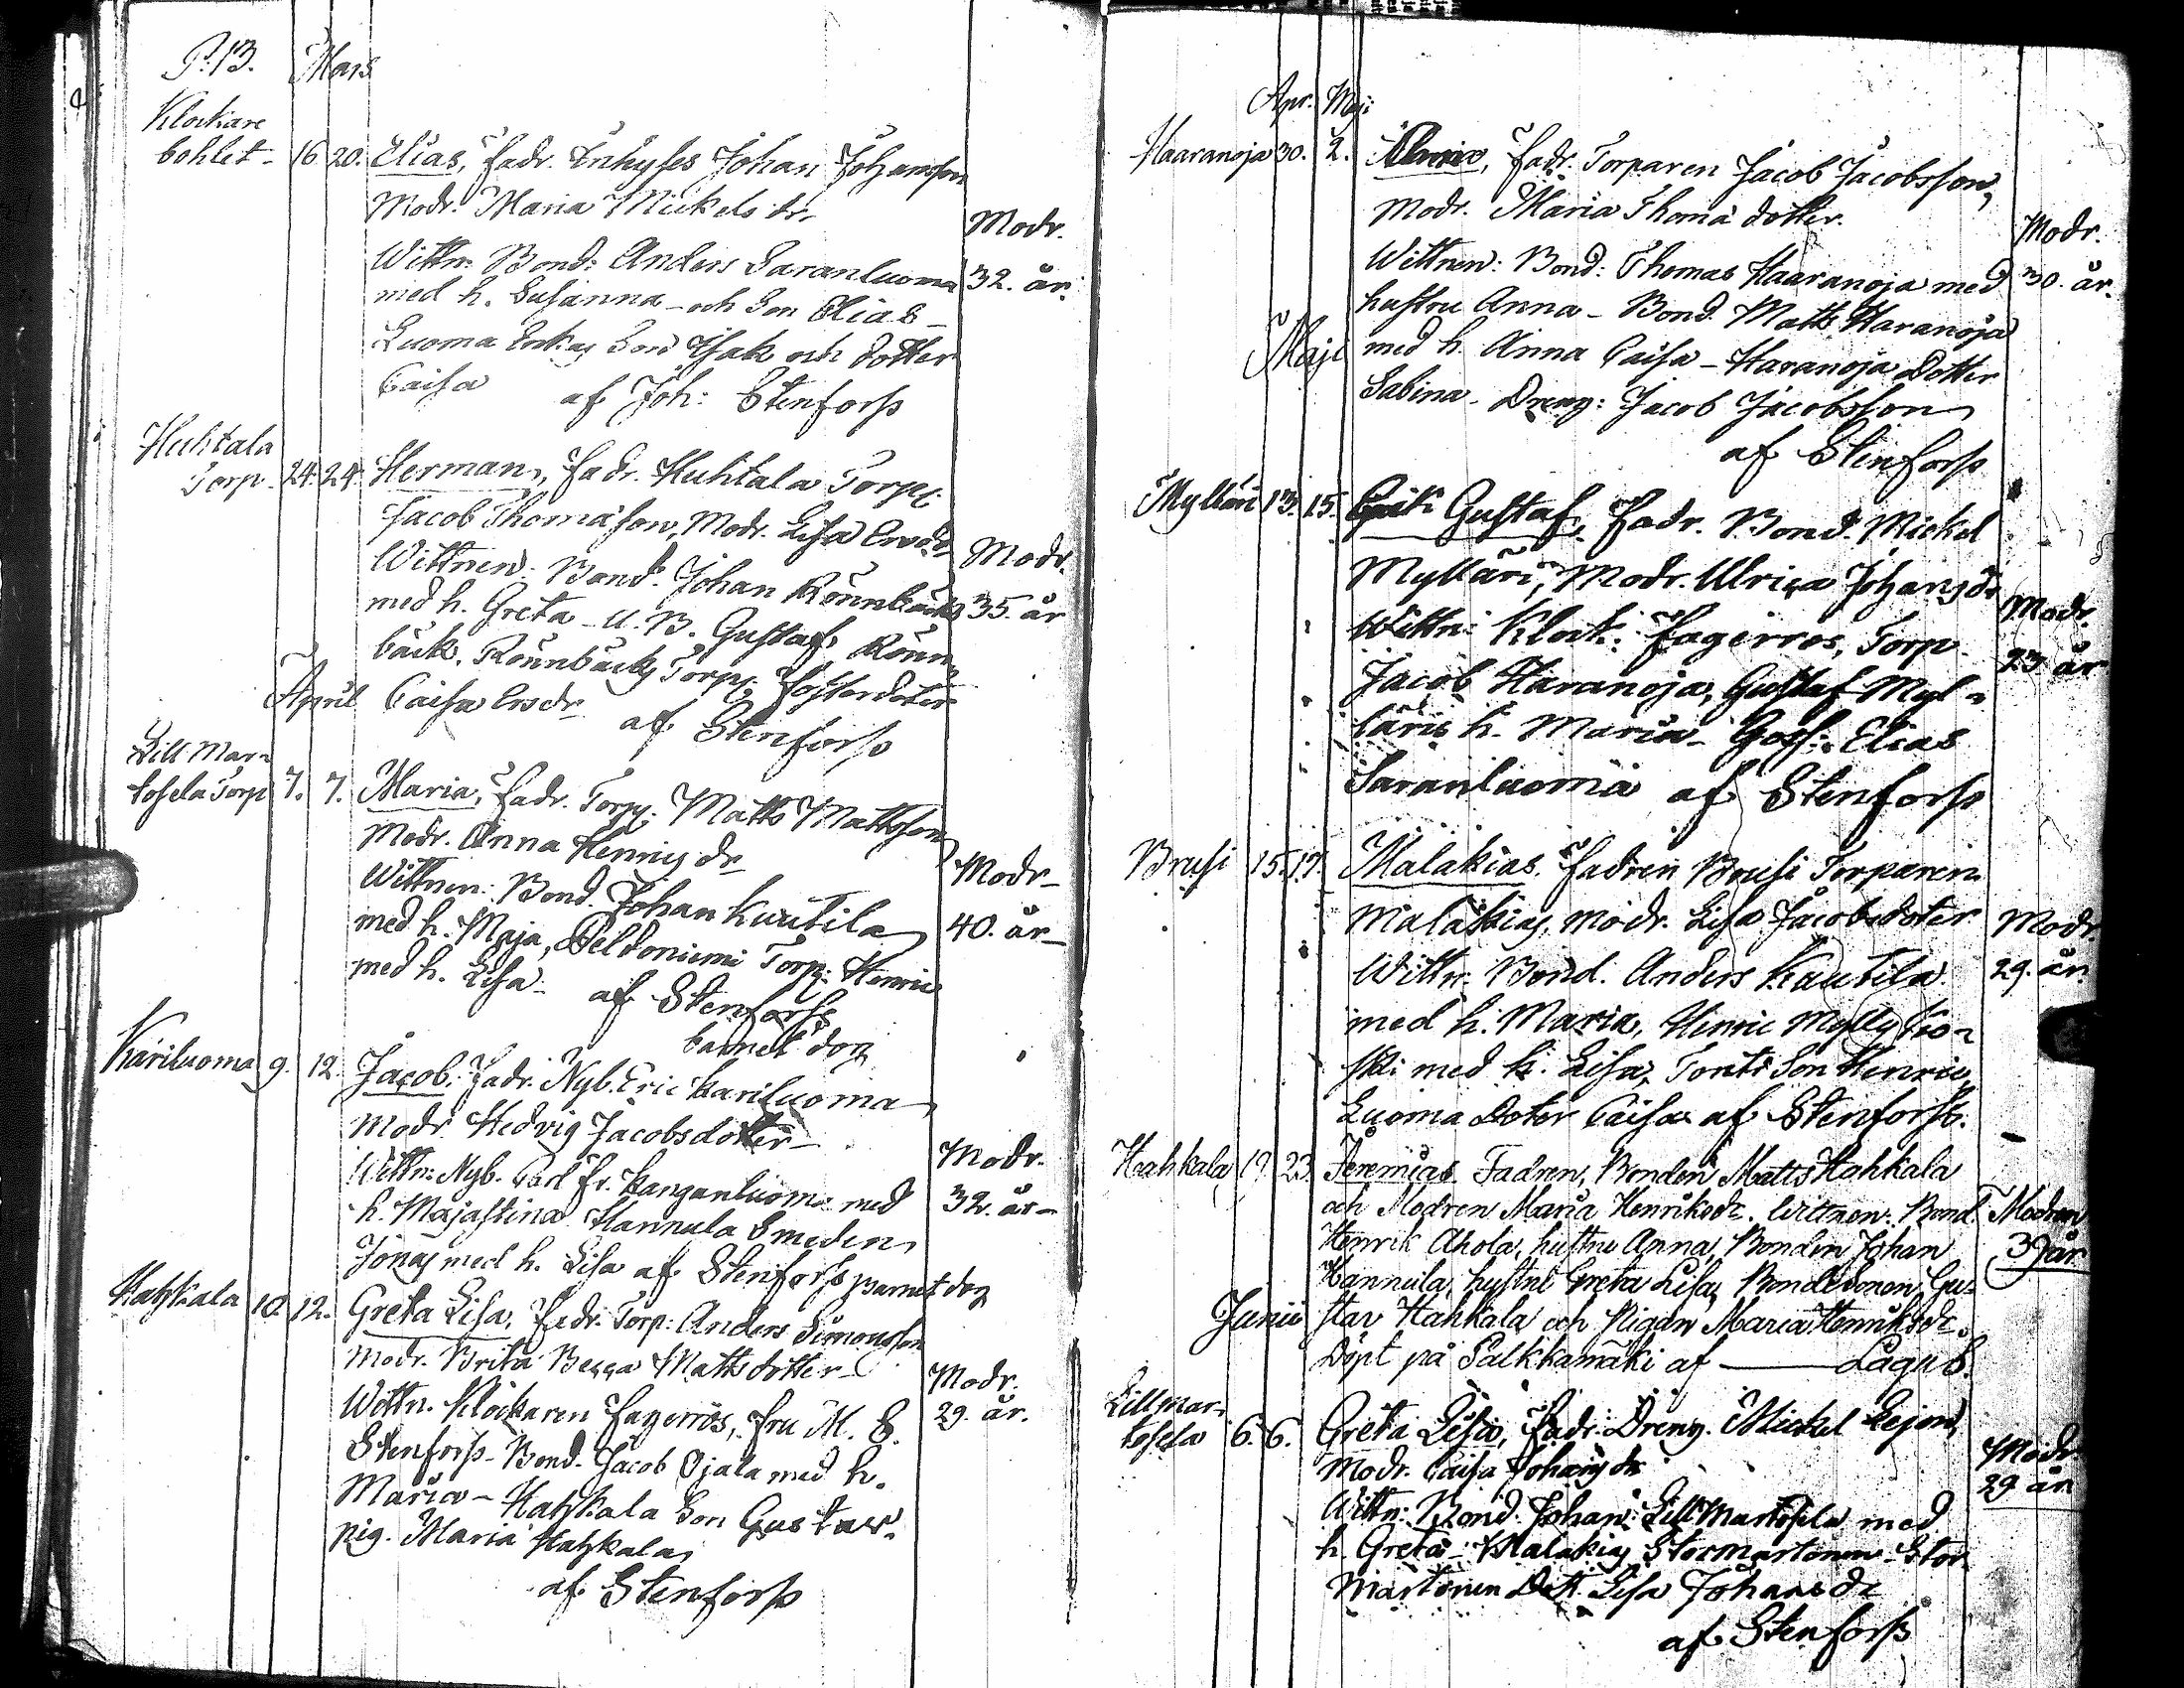 P. 13. Mars
Klockare
bohlet - 16 20. Elias, Fadr. Inhyses Johan Johansson
Modr. Maria Mickels dr
Modr.
Wittn: Bond: Anders Saranluoma 32. år.
med h. Susanna - och Son Elias -
Luoma Enkas Son Isak och dotter
Caisa af Joh: Stenforss
Huhtala
Torp - 24. 24. Herman, Fadr. Huhtala Torp:
Jacob Thomasson, Modr. Lisa Ersdr
Modr.
Wittnen: Bond. Johan Rönnbäck 35. år
med h. Greta - U. B. Gustaf Rönn
bäck. Rönnbäcks Torp: Fosterdoter
April Caisa Ersdr af Stenforss
Lill Mar-
tosela Torp 7. 7. Maria, Fadr. Torp: Matts Mattsson
Modr. Anna Henrics dr
Modr -
Wittnen: Bond. Johan Kuutila 40. år -
med h. Maja, Peldoniemi Torp: Henric
med h. Lisa - af Stenforss
barnet dog
Kariluoma 9. 12. Jacob. Fadr. Nyb. Eric Kariluoma
Modr Hedvig Jacobsdotter -
Modr.
Wittn: Nyb. Carl Fr. Kanganluoma med 32. år -
h. Majastina Hannula Smeden
Jonas med h. Lisa af Stenforss barnet dog
Hahkala 10. 12. Greta Lisa, Fadr. Torp: Anders Simonsson
Modr. Brita Mattsdotter -
Modr.
Wittn. Klockaren Fagerroos, Fru M. E. 29. år.
Stenforss - Bond. Jacob Ojala med h.
Maria - Hahkala Son Gustav.
pig. Maria Hahkala
af Stenforss
Apr. Maji
Haaranoja 30. 2. Fadr. Torparen Jacob Jacobsson,
Modr. Maria Thomä dotter.
Modr.
Wittnen: Bond: Thomas Haaranoja med 30. år.
hustru Anna - Bond. Matts Haranoja
Maji med h. Anna Caisa - Haranoja Dotter
Sabina - Dreng: Jacob Jacobsson
af Stenforss
Mylläri 13. 15. Erik Gustaf, Fadr. Bond. Mickel
Mylläri, Modr. Ulrica Johans dr
Modr.
Wittn: Klock: Fagerroos, Torp. 23 år
Jacob Haranoja, Gustaf Myl-
läris h. Maria - Goss: Elias
Saranluoma af Stenforss
Brusi 15. 17. Malakias. Fadren Brusi Torparen
Malakias, Modr. Lisa Jacobsdoter Modr.
Wittn: Bond. Anders Kautila 29. år.
med h. Maria, Henric Mylly
med h. Lisa, Tonti Son Henric,
Luoma Doter Caisa af Stenforss.
Hahkala 19 23. Jeremias. Fadren, Bonden Matts Hahkala
och Modren Maria Henriksdr. Wittnen: Bond. Modren
Henrik Ahola, hustru Anna, Bonden Johan 39 år
Hannula, hustru Greta Lisa, Bondesonen Gu-
Junii stav Hahkala och Pigan Maria Henriksdr.
Döpt på Palkkamäki af — Lagus.
Lillmar-
tosela 6. 6. Greta Lisa, Fadr. Dreng. Mickel Lejon,
Modr. Caisa Johans dr Modr.
29 år
Wittn: Bond. Johan Lillmartosela med
h. Greta - Malakias Stormartonen - Stor
martonen Dott. Lisa Johans dr
af Stenforss